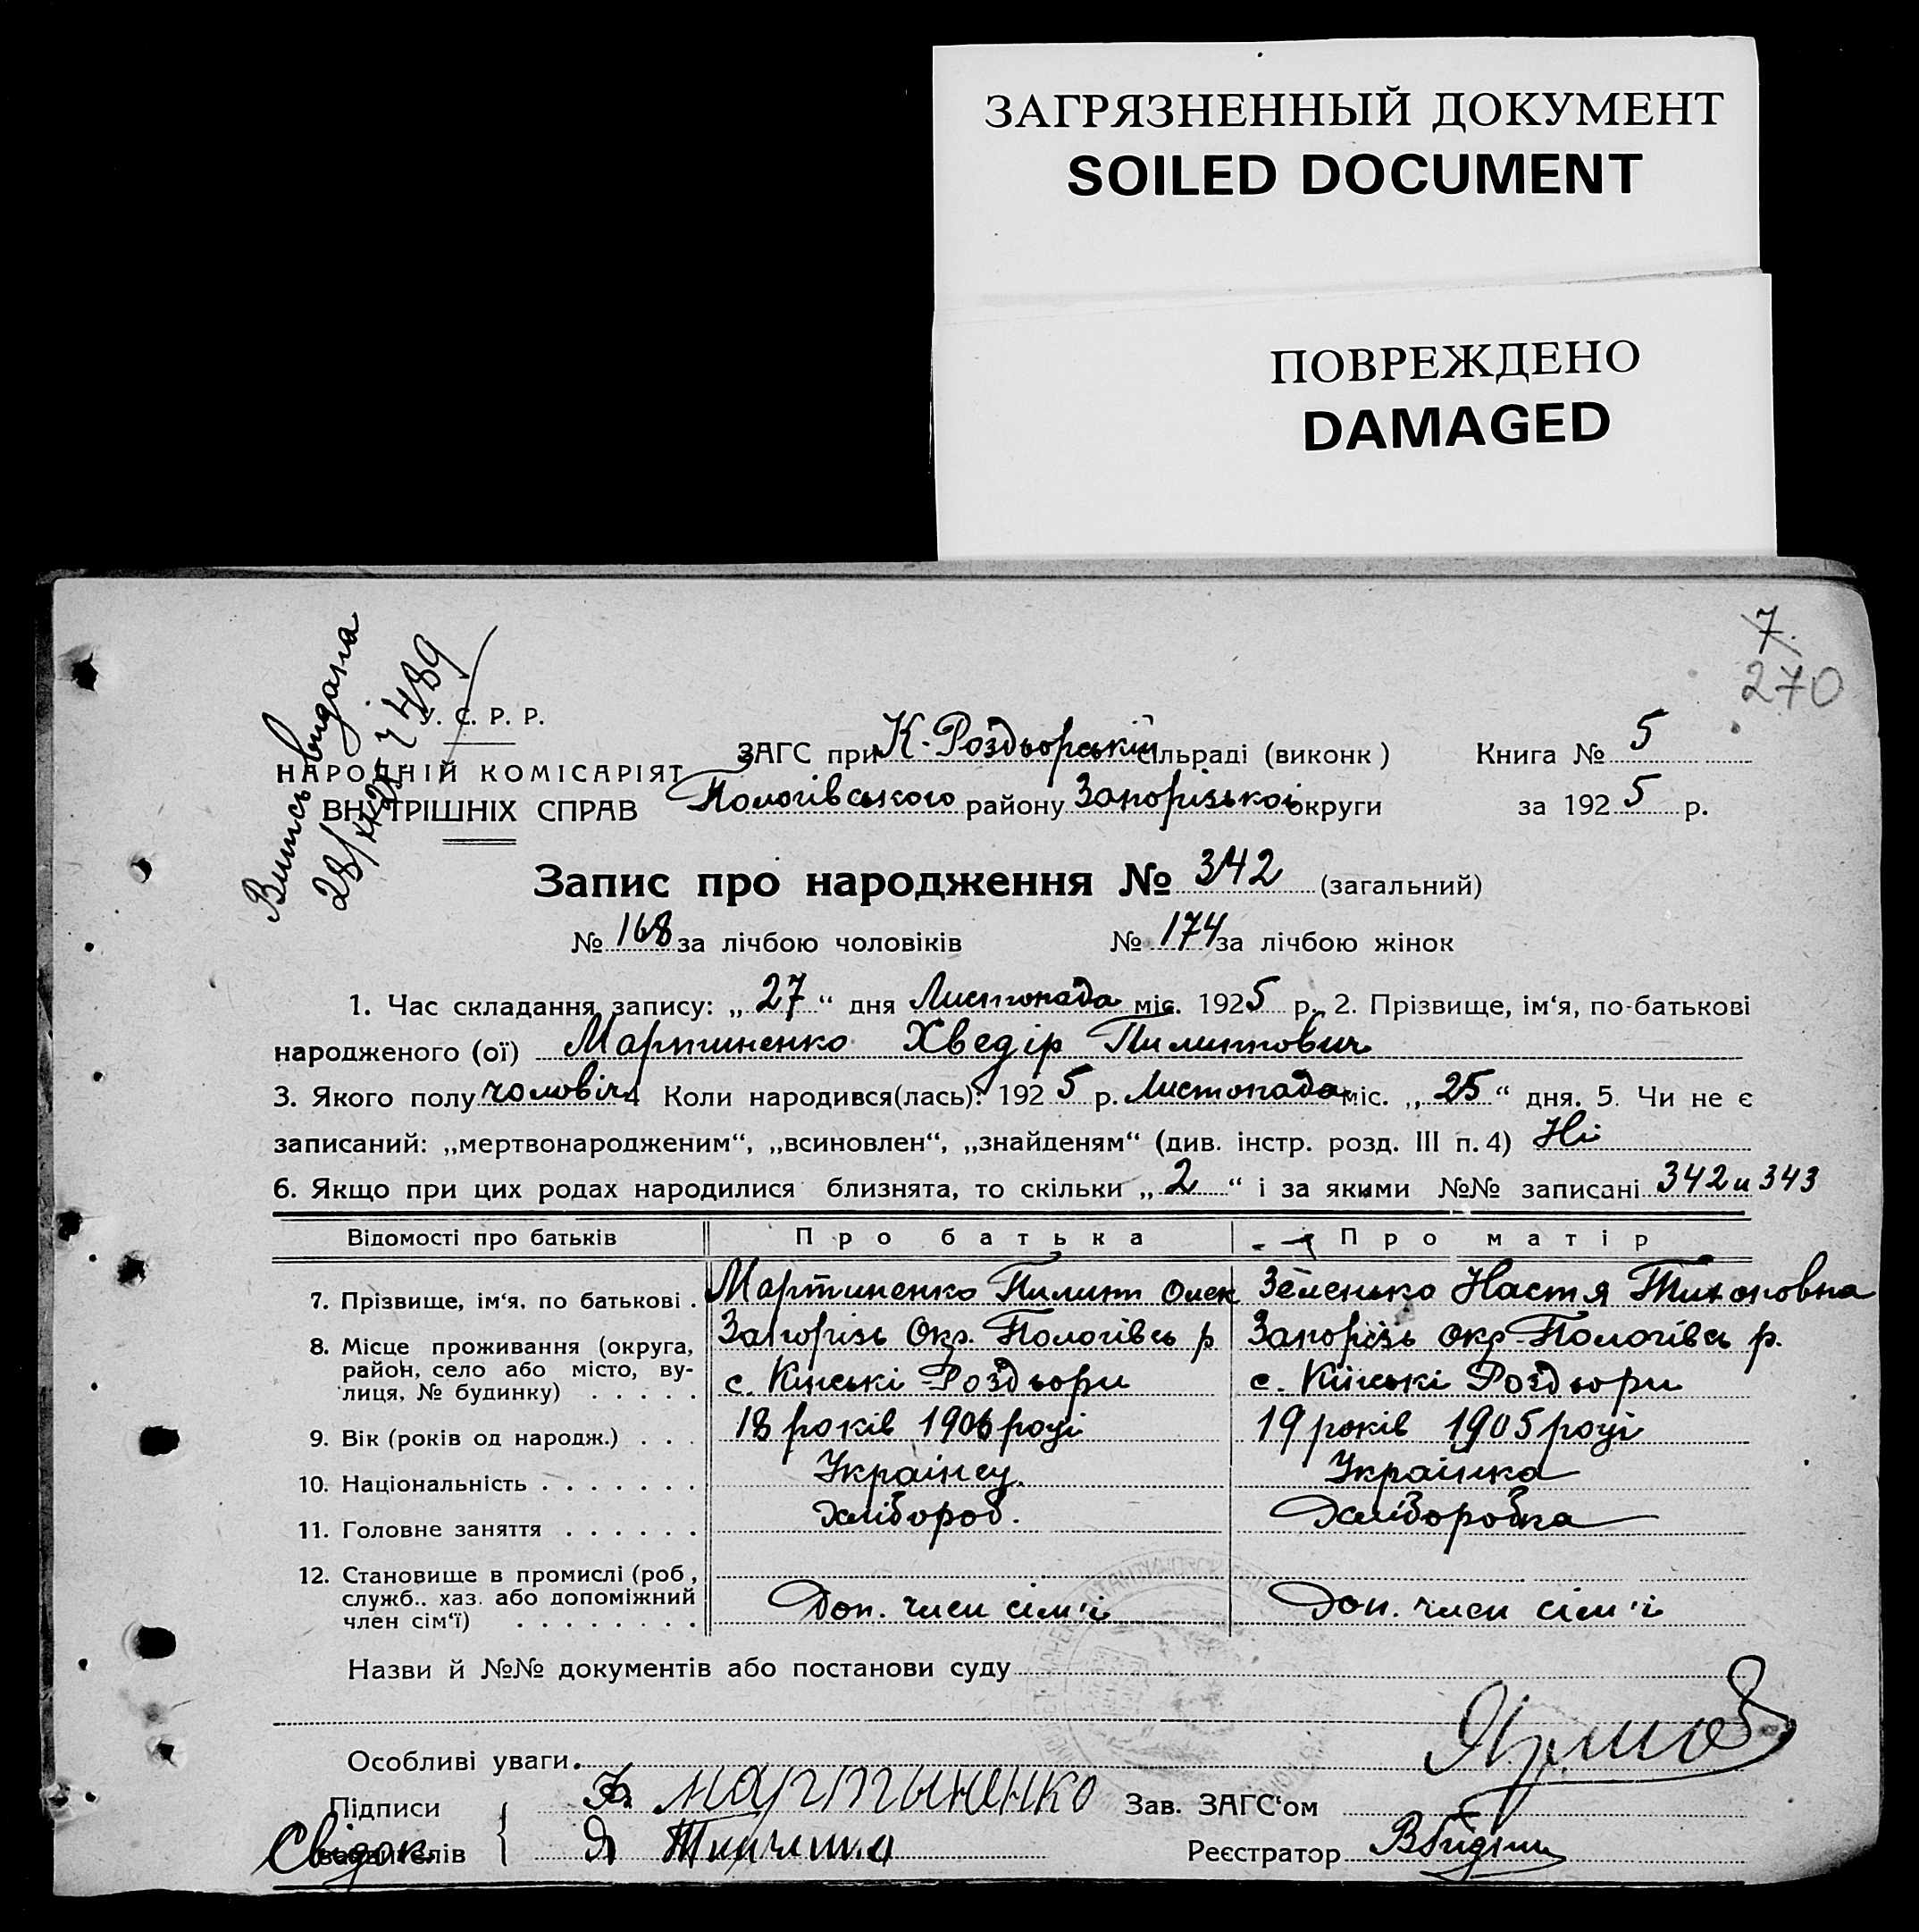 ЗАГРЯЗНЕННЫЙ ДОКУМЕНТ
SOILED DOCUMENT
ПОВРЕЖДЕНО
DAMAGED
7.
270
Випись видана
28/XI 25 489
У. С. Р. Р.
НАРОДНІЙ КОМІСАРІЯТ
ВНУТРІШНІХ СПРАВ
ЗАГС при К-Роздьорській сільраді (виконк) Книга № 5
Пологівського району Запорізької округи за 1925 р.
Запис про народження № 342 (загальний)
№ 168 за лічбою чоловіків № 174 за лічбою жінок
1. Час складання запису: „27“ дня Листопада міс. 1925 р. 2. Прізвище, ім‘я, по-батькові
народженого (ої) Мартиненко Хведір Пилипович
3. Якого полу чоловіч. 4 Коли народився(лась): 1925 р. Листопада міс. „25“ дня. 5. Чи не є
записаний: „мертвонародженим“, „всиновлен“, „знайденям“ (див. інстр. розд. III п. 4) Ні
6. Якщо при цих родах народилися близнята, то скільки „2“ і за якими №№ записані 342 и 343
Відомості про батьків Про батька Про матір
7. Прізвище, ім‘я, по батькові . Мартиненко Пилип Олек Зеленько Настя Тихоновна
8. Місце проживання (округа, Запорізь Окр. Пологівсь р Запорізь окр Пологівсь р.
район, село або місто, ву-
лиця, № будинку) . . . . . с. Кінські Роздьори с. Кінські Роздьори
9. Вік (років од народж.) . . . 18 років 1906 році 19 років 1905 році
10. Національність . . . . . . . Українец. Українка
11. Головне заняття . . . . . . хлібороб. Хліборобка
12. Становище в промислі (роб.,
служб.. хаз. або допоміжний Доп. член сім'ї Доп. член сім'ї
член сім‘ї) . . . . . . . .
Назви й №№ документів або постанови суду
Особливі уваги.
Підписи мартыненко Зав. ЗАГС‘ом
Свідок заявителів Реєстратор